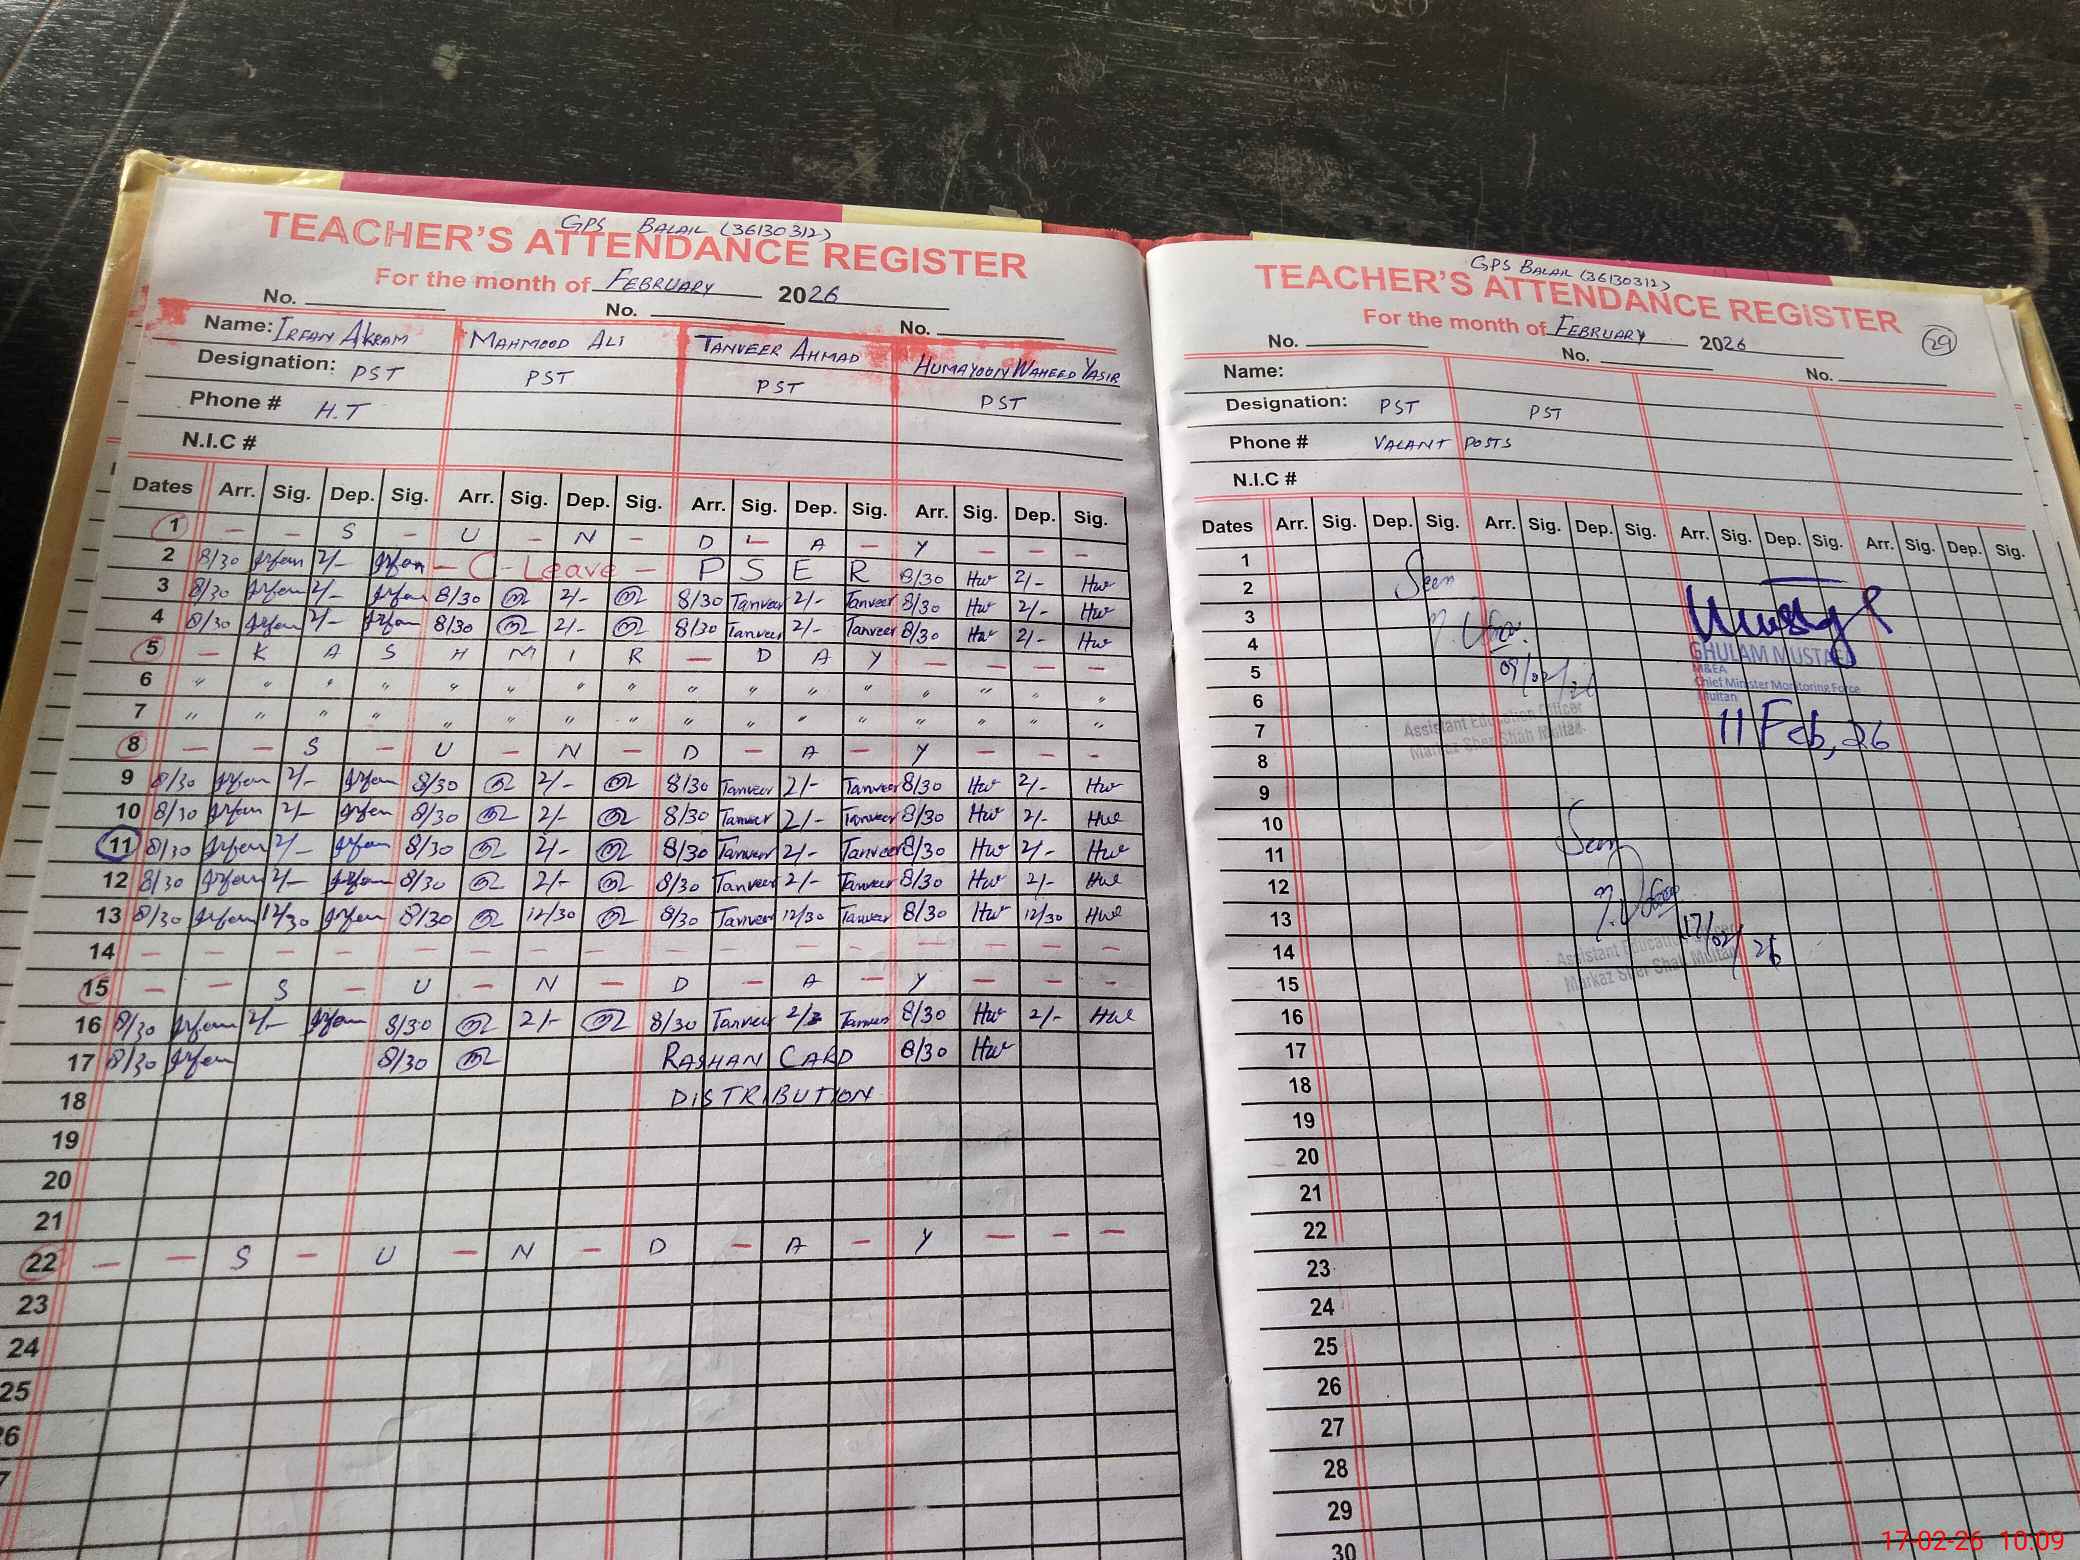 GPS BALAIL (36130312)
TEACHER'S ATTENDANCE REGISTER
For the month of FEBRUARY 2026
No. No. No.
Name: IRFAN AKRAM MAHMOOD ALI TANVEER AHMAD HUMAYOON WAHEED YASIR
Designation: PST PST PST PST
Phone # H.T
N.I.C #
Dates Arr. Sig. Dep. Sig. Arr. Sig. Dep. Sig. Arr. Sig. Dep. Sig. Arr. Sig. Dep. Sig.
1 - - S - U - N - D - A - Y - - -
2 8/30 Irfan 2/- Irfan - C-Leave - P S E R 8/30 Hw 2/- Hw
3 8/30 Irfan 2/- Irfan 8/30 2/- 8/30 Tanveer 2/- Tanveer 8/30 Hw 2/- Hw
4 8/30 Irfan 2/- Irfan 8/30 2/- 8/30 Tanveer 2/- Tanveer 8/30 Hw 2/- Hw
5 - K A S H M I R - D A Y - - - -
6 " " " " " " " " " " " " " " " "
7 " " " " " " " " " " " " " " " "
8 - - S - U - N - D - A - Y - - -
9 8/30 Irfan 2/- Irfan 8/30 2/- 8/30 Tanveer 2/- Tanveer 8/30 Hw 2/- Hw
10 8/30 Irfan 2/- Irfan 8/30 2/- 8/30 Tanveer 2/- Tanveer 8/30 Hw 2/- Hw
11 8/30 Irfan 2/- Irfan 8/30 2/- 8/30 Tanveer 2/- Tanveer 8/30 Hw 2/- Hw
12 8/30 Irfan 2/- Irfan 8/30 2/- 8/30 Tanveer 2/- Tanveer 8/30 Hw 2/- Hw
13 8/30 Irfan 12/30 Irfan 8/30 12/30 8/30 Tanveer 12/30 Tanveer 8/30 Hw 12/30 Hw
14 - - - - - - - - - - - - - - - -
15 - - S - U - N - D - A - Y - - -
16 8/30 Irfan 2/- Irfan 8/30 2/- 8/30 Tanveer Tanveer 8/30 Hw 2/- Hw
17 8/30 Irfan 8/30 RASHAN CARD 8/30 Hw
18 DISTRIBUTION
19
20
21
22 - - S - U - N - D - A - Y - - -
23
24
25
26
7
GPS BALAIL (36130312)
TEACHER'S ATTENDANCE REGISTER
For the month of FEBRUARY 2026 29
No. No. No.
Name:
Designation: PST PST
Phone # VACANT POSTS
N.I.C #
Dates Arr. Sig. Dep. Sig. Arr. Sig. Dep. Sig. Arr. Sig. Dep. Sig. Arr. Sig. Dep. Sig.
1
2 Seen
3
4
GHULAM MUSTAFA
5 09/02/26
M&EA
6 Chief Minister Monitoring Force
Multan
7 Assistant Education Officer 11 Feb, 26
Markaz Sher Shah Multan
8
9
10
11 Seen
12
13 17/02/26
14 Assistant Education Officer
Markaz Sher Shah Multan
15
16
17
18
19
20
21
22
23
24
25
26
27
28
29
30
17-02-26 10:09